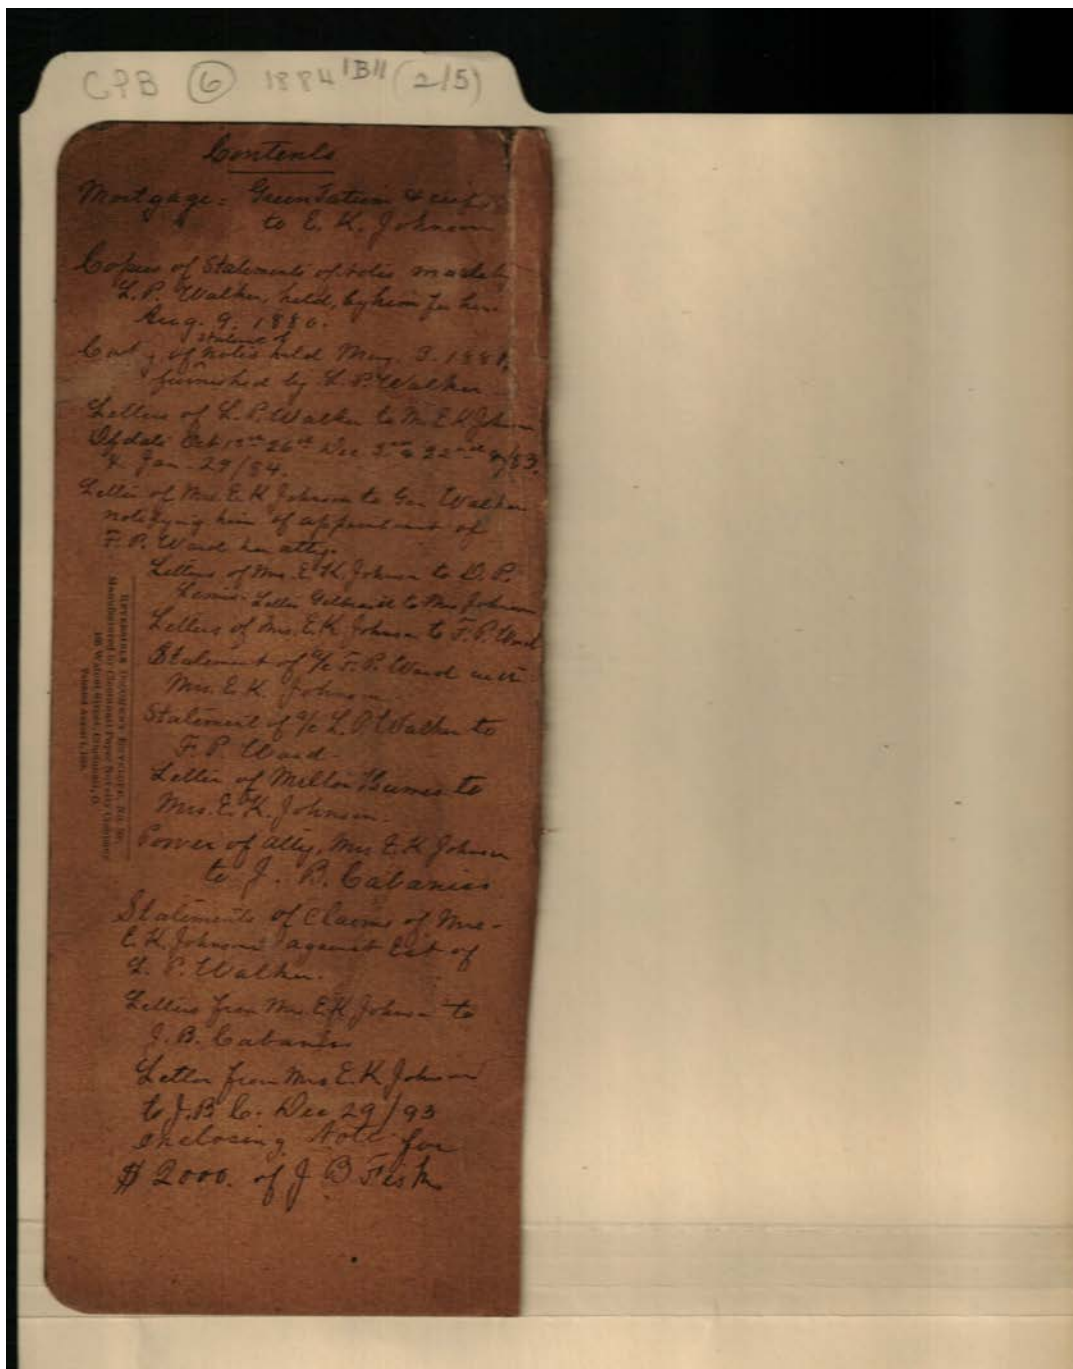 CPB 6 1884 "B" (2/5)
Contents
Mortgage = Green Tatum & wife
to E. K. Johnson
Copies of Statements of notes made by
L. P. Walker, held, by him for her
Aug. 9. 1880.
statement of
Copy of notes held May. 3. 1881,
furnished by L. P. Walker
Letters of L. P. Walker to Mrs E K Johnson
Of date Oct 26th Dec 3rd & 22nd /83.
& Jan. 29/84.
Letter of Mrs E. K. Johnson to Gen Walker
notifying him of appointment of
F. P. Ward her atty.
Letters of Mrs. E. K. Johnson to D. P.
Lewis. Letter to Mrs Johnson
Letters of Mrs. E. K. Johnson to F. P. Ward
Statement of a/c F. P. Ward with
Mrs. E. K. Johnson.
Statement of a/c L. P. Walker to
F. P. Ward
Letter of Milton Humes to
Mrs. E. K. Johnson.
Power of atty. Mrs E. K Johnson
to J. B. Cabaniss
Statements of Claims of Mrs.
E. K. Johnson against Est of
L. P. Walker.
Letters from Mrs E. K. Johnson to
J. B. Cabaniss
Letter from Mrs E. K Johnson
to J. B. C. Dec 29/93
enclosing Note for
$2000. of J B Fisk
Reversible Document Envelope, No. 10.
Manufactured by Cincinnati Paper Novelty Company
Walnut Street, Cincinnati, O.
Patented August